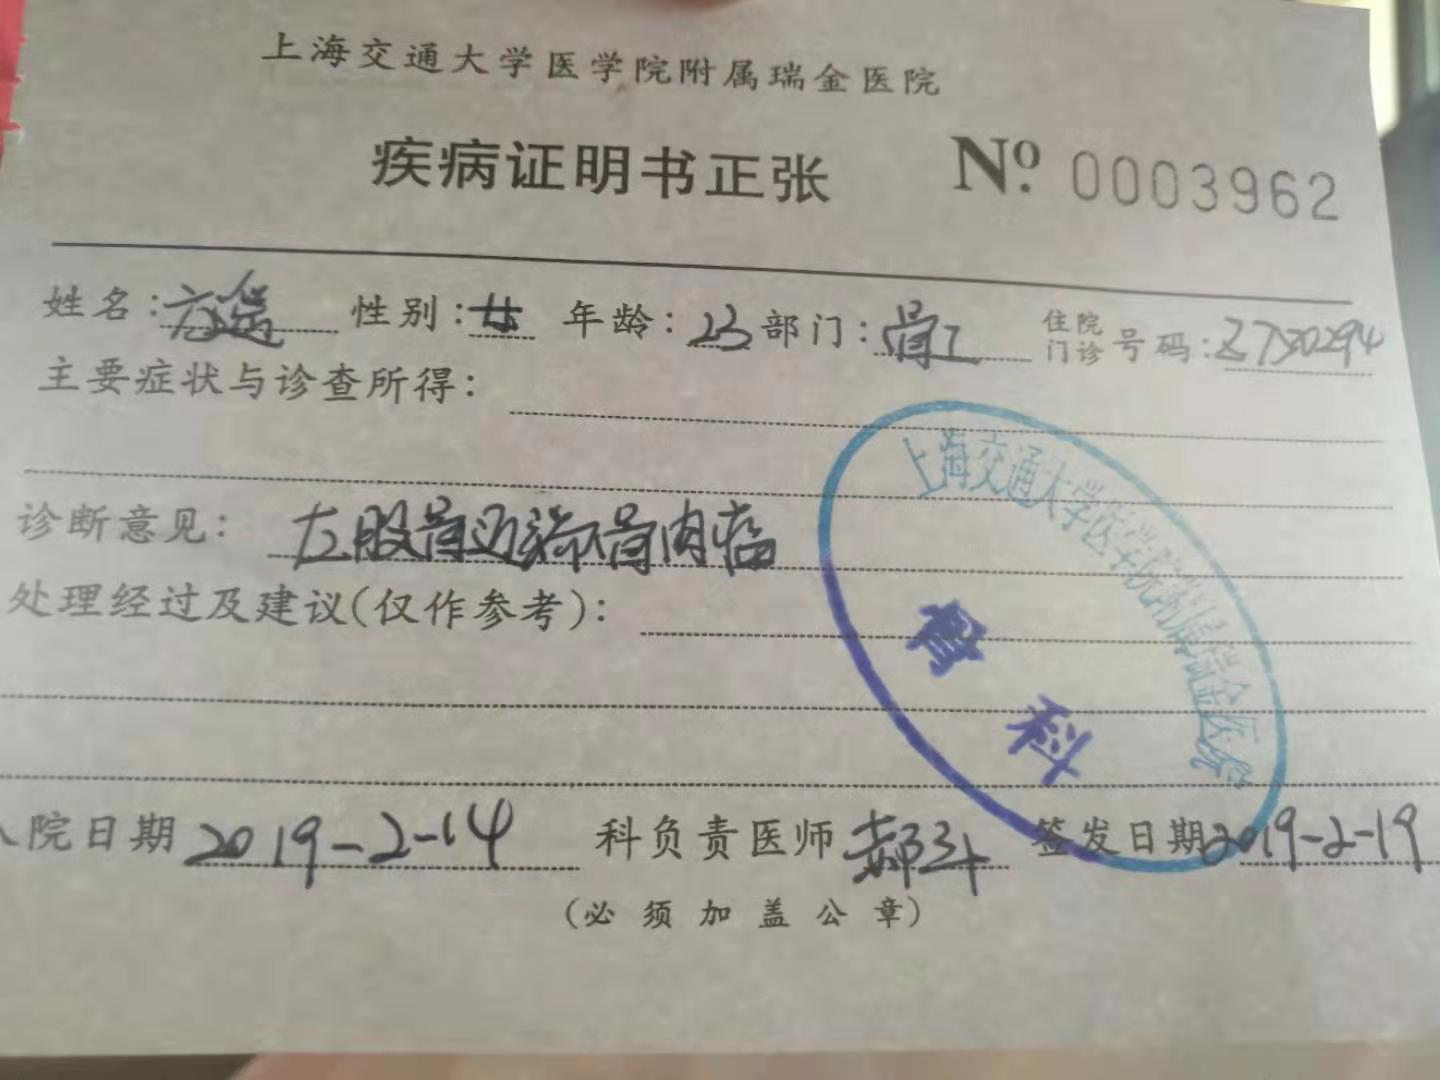 上海交通大学医学院附属瑞金医院
疾病证明书正张 Nº. 0003962
姓名: 方 性别:女 年龄:23 部门:骨 住院门诊号码:Z730294
主要症状与诊查所得:
诊断意见: 左股骨近端骨肉瘤
处理经过及建议(仅作参考):
上海交通大学医学院附属瑞金医院
骨科
入院日期 2019-2-14 科负责医师 签发日期 2019-2-19
(必须加盖公章)